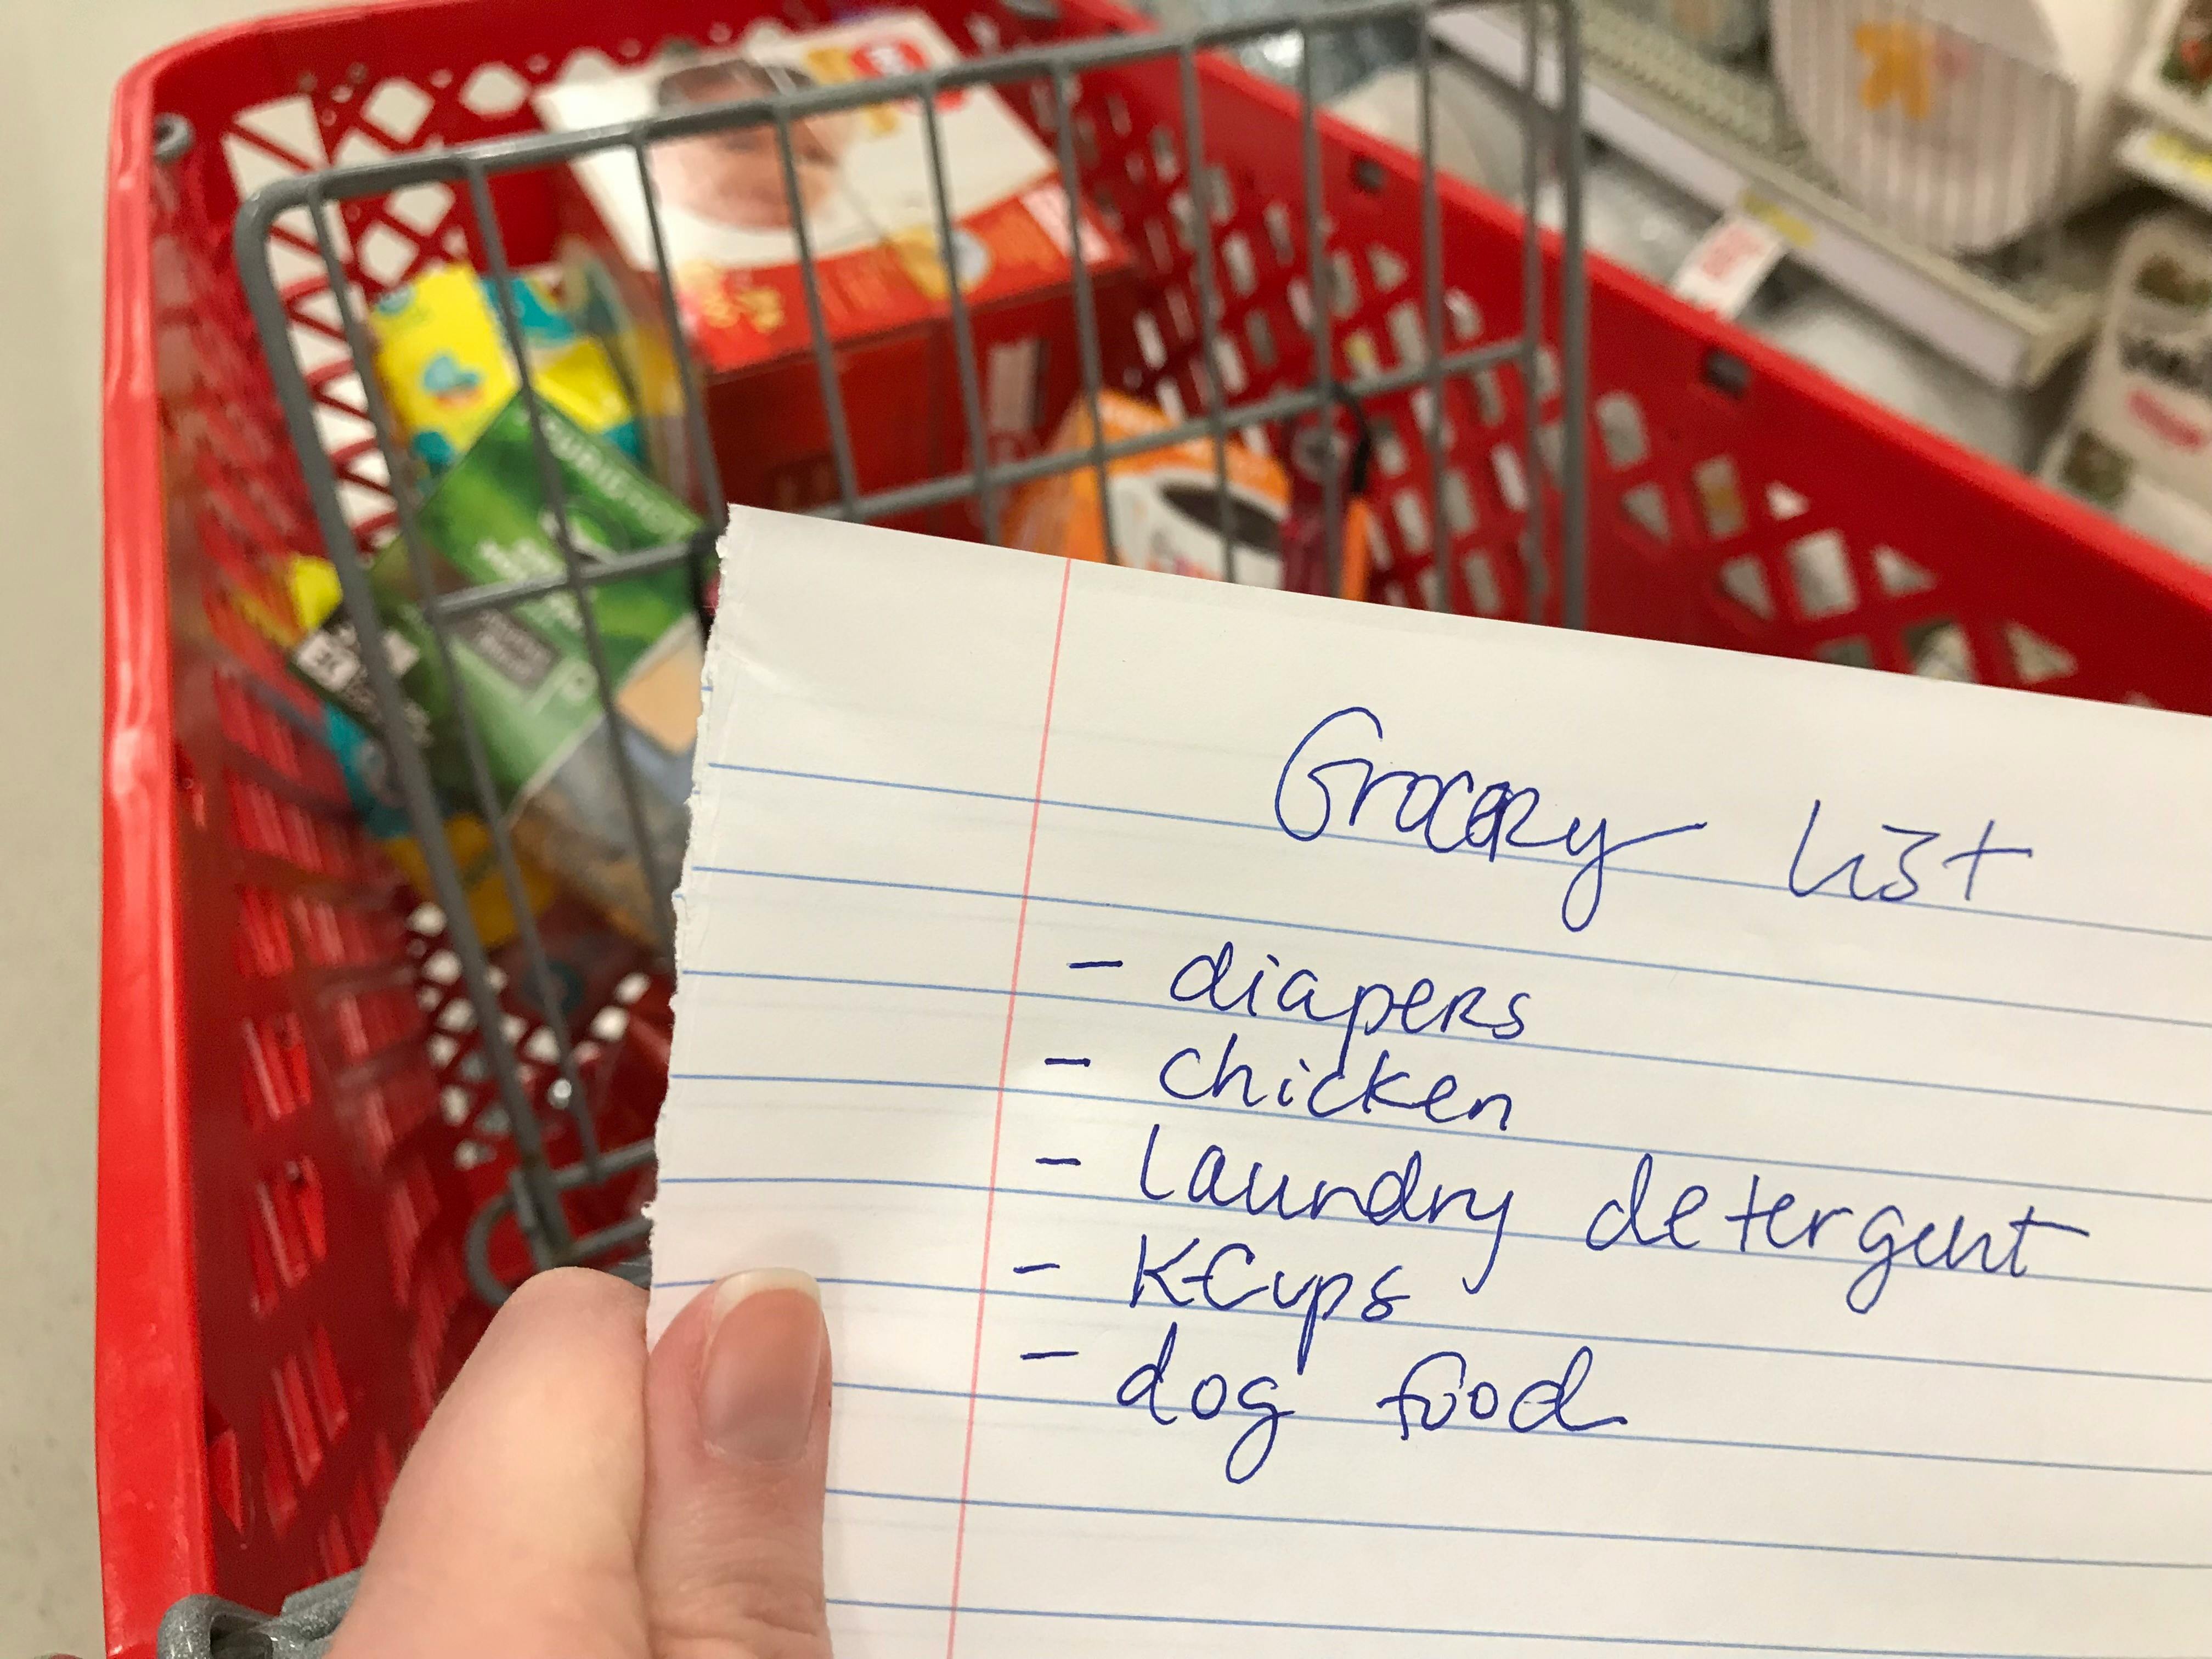 Grocery list
- diapers
- chicken
- laundry detergent
- KCups
- dog food